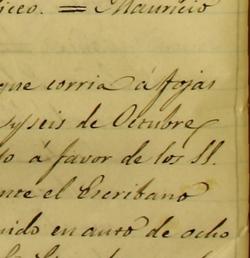 iceo. = Mauricio
que corria á fojas
yseis de Octubre
do á favor de los SS.
nte el Escribano
uido en auto de ocho